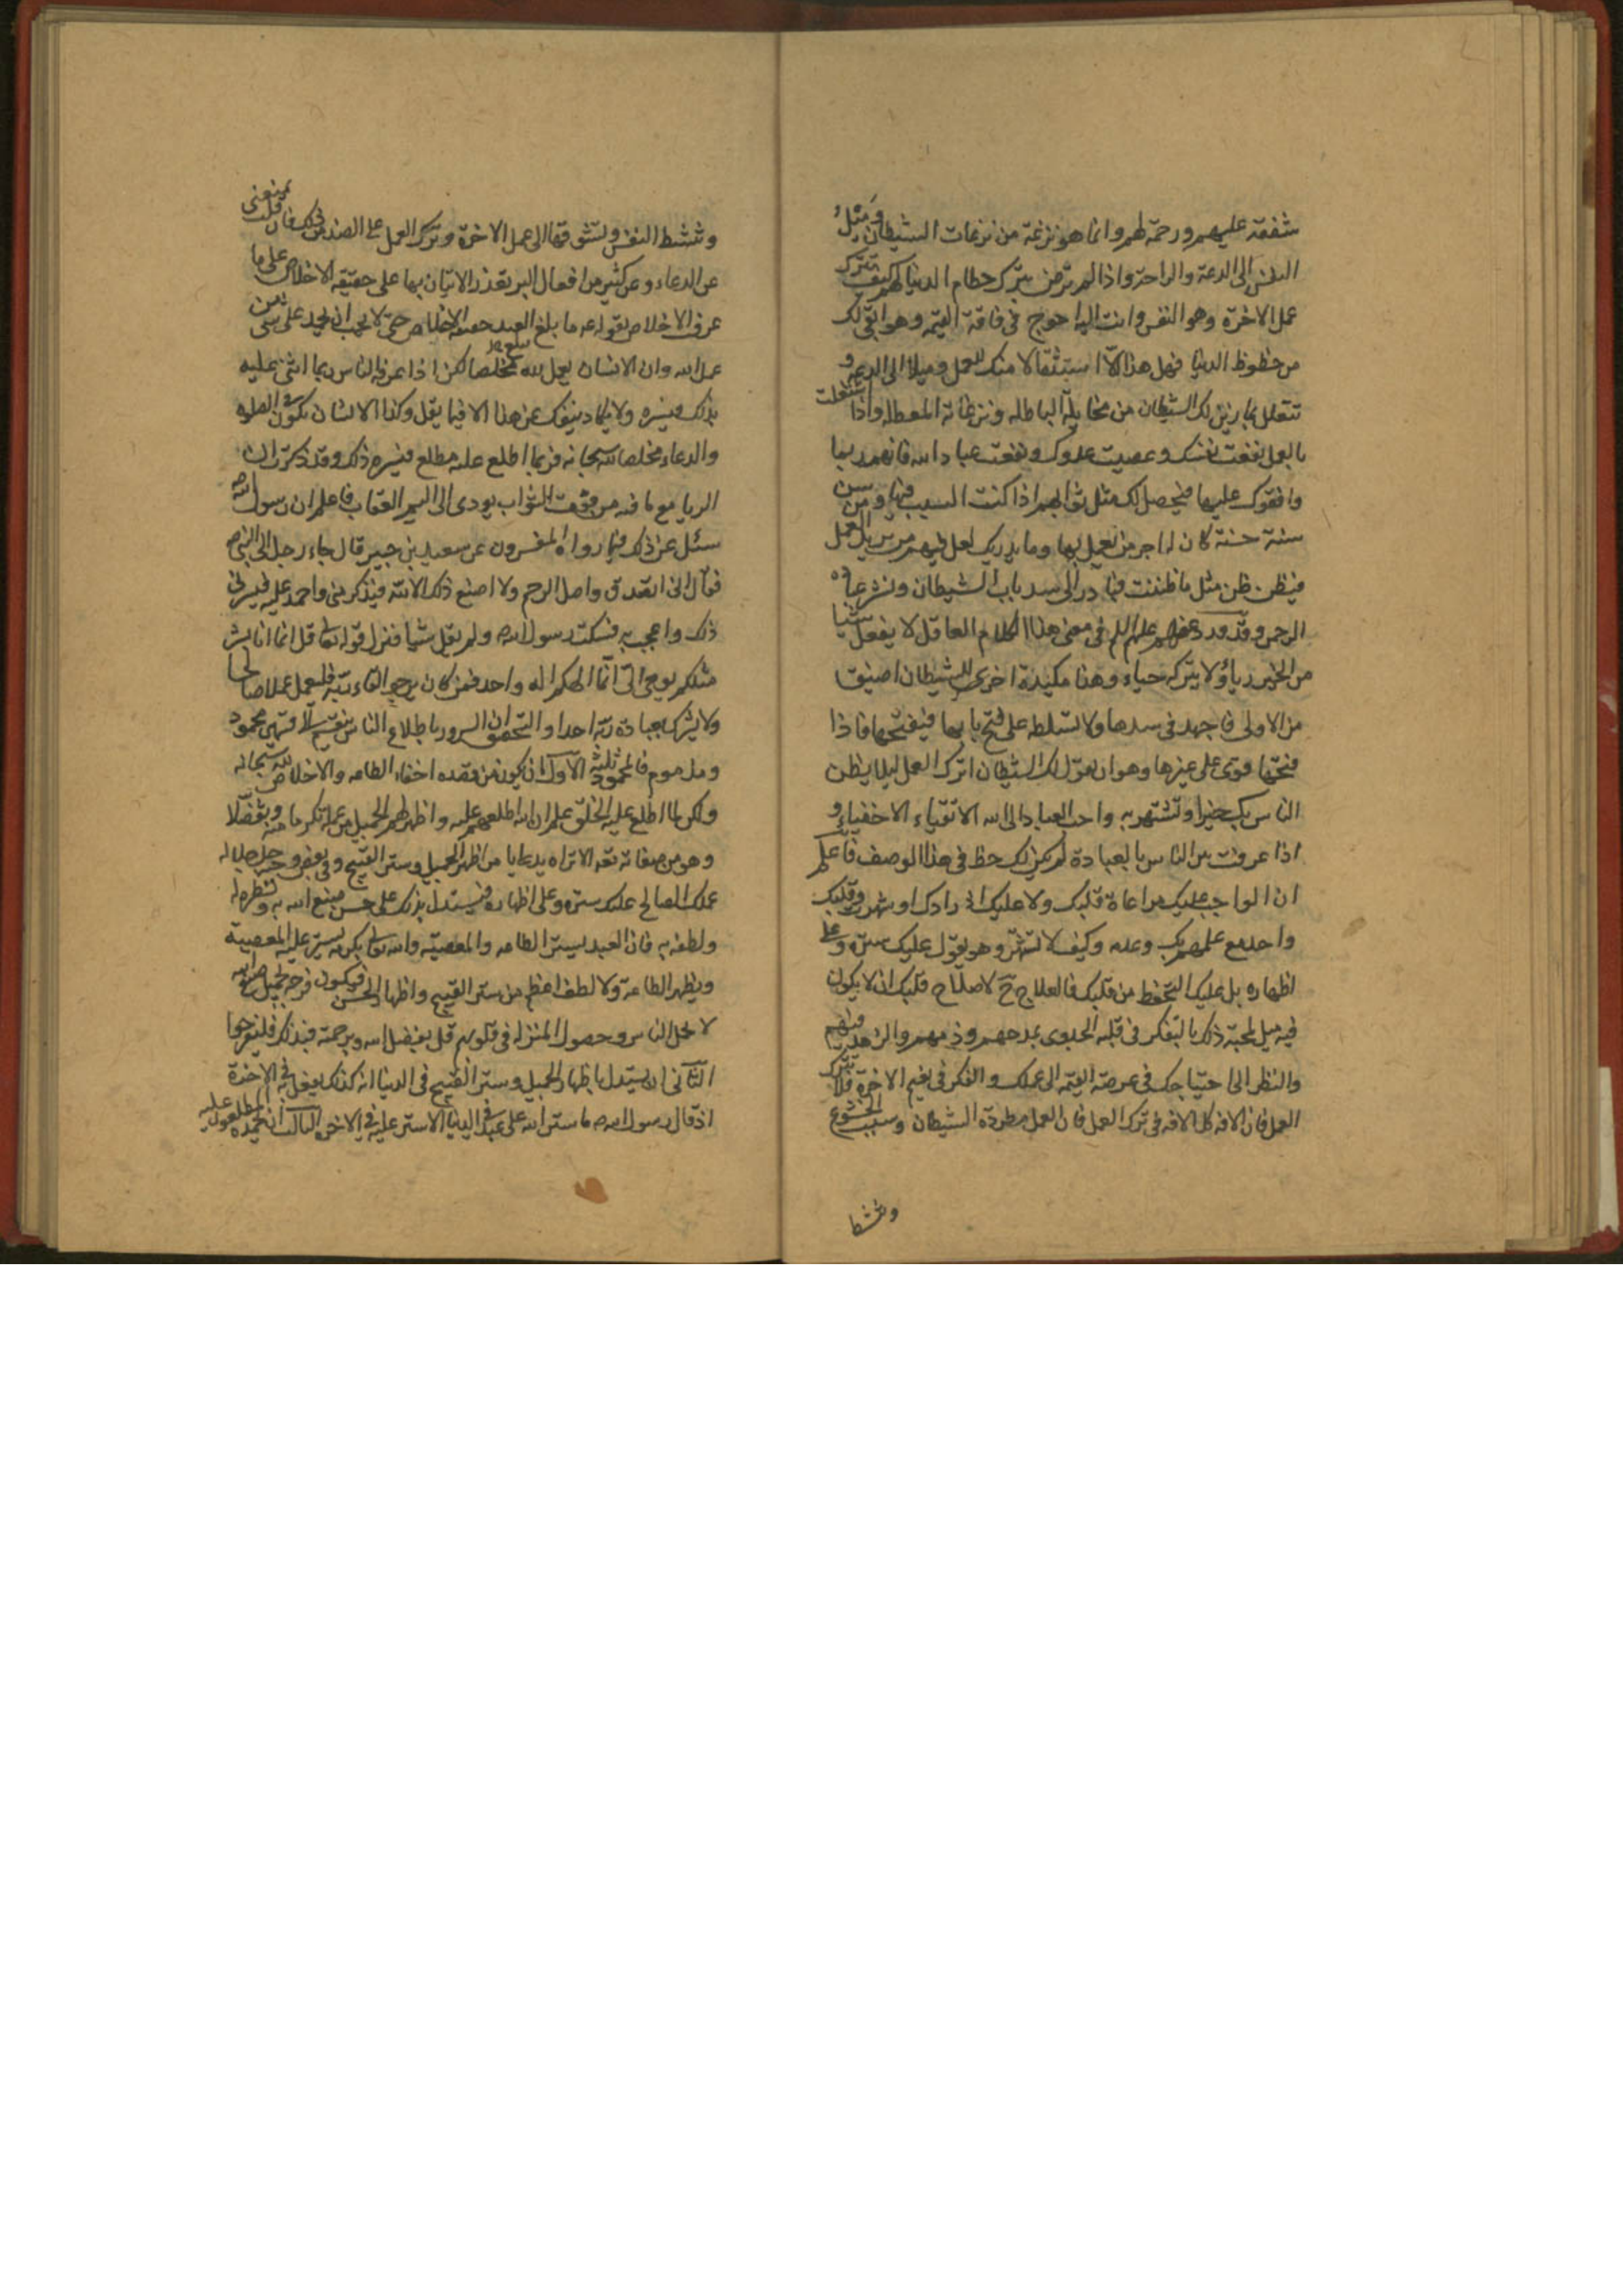 شفقة عليهم ورحمة لهم وانما هو نزغة من نزغات الشيطان وميل
النفس الى الدعة والراحة واذا لم ترض بترك حطام الدنيا لهم كيف تترك
عمل الاخرة وهو النفس وانت اليه احوج في فاقة القيمة وهو ابقى لك
من حظوظ الدنيا فهل هذا الا استثقالا منك للعمل وميلا الى الدعة و
تتعلل بما يزين لك الشيطان من مخايله الباطله ونزغاته المعطله واذا اشتغلت
بالعمل نفعت نفسك وعصيت عدوك ونفعت عباد الله فانهم ربما
وافقوك عليها فيحصل لك مثل ثوابهم اذا كنت السبب فيها ومن سن
سنة حسنة كان له اجر من يعمل بها وما يدريك لعل فيهم من يريد العمل
فيظن ظن مثل ما ظننت فبادر الى سد باب الشيطان ونشر عباده
الرحمن وقد ورد عنهم عليهم السلم في معنى هذا الكلام العاقل لا يفعل شيئا
من الخير رياء ولا يتركه حياء وهذا مكيدة اخرى للشيطان اضيق
من الاولى فاجهد في سدها ولا تسلطه على فتح بابها فيفتحها فاذا
فتحها قوى على غيرها وهو ان يقول لك الشيطان اترك العمل ليلا يظن
الناس بك خيرا وتشتهر به واحب العباد الى الله الاتقياء الاخفياء و
اذا عرفت بين الناس بالعبادة لم يكن لك حظ في هذا الوصف فاعلم
ان الواجب عليك مراعاة قلبك ولا عليك ان رادك او شهرت وقلبك
واحد مع علمهم بك وعدمه وكيف لا تشتهر وهو يقول عليك ستره وعلى
اظهاره بل عليك التحفظ من قلبك فالعلاج ح لاصلاح قلبك ان لا يكون
فيه ميل لمحبة ذلك بالتفكر في قلة الجدوى بمدحهم وذمهم والزهد فيهم
والنظر الى احتياجك في عرصة القيمه الى عملك والفكر في نعيم الاخرة فلا تترك
العمل فان الافه كل الافه في ترك العمل فان العمل مطردة الشيطان وسبب الخشوع
وتنشط
وتنشط النفس وتشوقها الى عمل الاخرة وترك العمل على الضد من ذلك فان قلت يمنعنى
عن الدعاء وعن كثير من افعال البر تعذر الاتيان بها على حقيقة الاخلاص على ما
عرف الاخلاص بقوله ما بلغ العبد حقيقة الاخلاص حتى لا يحب ان يحمد على شئ من
عمل الله وان الانسان يعمل لله مخلصا لكن اذا عرف الناس ربما اثنى عليه
بذلك فيسره ولا يكاد ينفك عن هذا الا فيما يقل وكذا الانسان يكون في الصلوة
والدعاء مخلصا لله سبحانه فربما اطلع عليه مطلع فيسره ذلك وقد ذكرت ان
الريا مع ما فيه من فوت الثواب يودى الى اليم العقاب فاعلم ان رسول الله ص
سئل عن ذلك فيما رواه المفسرون عن سعيد بن جبير قال جاء رجل الى النبي ص
فقال انى اتصدق واصل الرحم ولا اصنع ذلك الا لله فيذكر منى واحمد عليه فيسرنى
ذلك واعجب به فسكت رسول الله ص ولم يقل شيئا فنزل قوله تعالى قل انما انا بشر
مثلكم يوحى الى انما الهكم اله واحد فمن كان يرجو لقاء ربه فليعمل عملا صالحا
ولا يشرك بعبادة ربه احدا والتحقيق ان السرور باطلاع الناس ينقسم الى قسمين محمود
ومذموم فالمحمود ثلثة الاول ان يكون من قصده اخفاء الطاعه والاخلاص لله سبحانه
ولكن لما اطلع عليه الخلق علم ان الله اطلعهم عليه واظهر لهم الجميل من عمله تكرما منه وتفضلا
وهو من صفاته تعه الا تراه يدعا يا من اظهر الجميل وستر القبيح وفي بعض وحيه جل جلاله
عملك الصالح عليك ستره وعلى اظهاره فيستدل بذلك على حسن صنع الله به ونظره له
ولطفه به فان العبد يستر الطاعه والمعصية والله تعالى بكرمه يستر عليه المعصية
ويظهر الطاعة ولا لطف اعظم من ستر القبيح واظهار الحسن فيكون فرحه بجميل صنع الله
لا بحمد الناس وحصول المنزله في قلوبهم قل بفضل الله وبرحمته فبذلك فليفرحوا
الثاني ان يستدل باظهار الجميل وستر القبيح في الدنيا انه كذلك يفعل به في الاخرة
اذ قال رسول الله ص ما ستر الله على عبد في الدنيا الا ستر عليه في الاخره الثالث ان يحمده المطلعون عليه